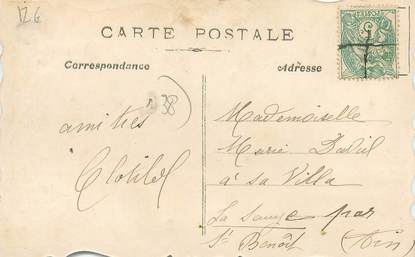 126
CARTE POSTALE
Correspondance
Adresse
38
amitiés
Clotilde
Mademoiselle
Marie
à sa Villa
La Sauge par
St Benoît (Ain)